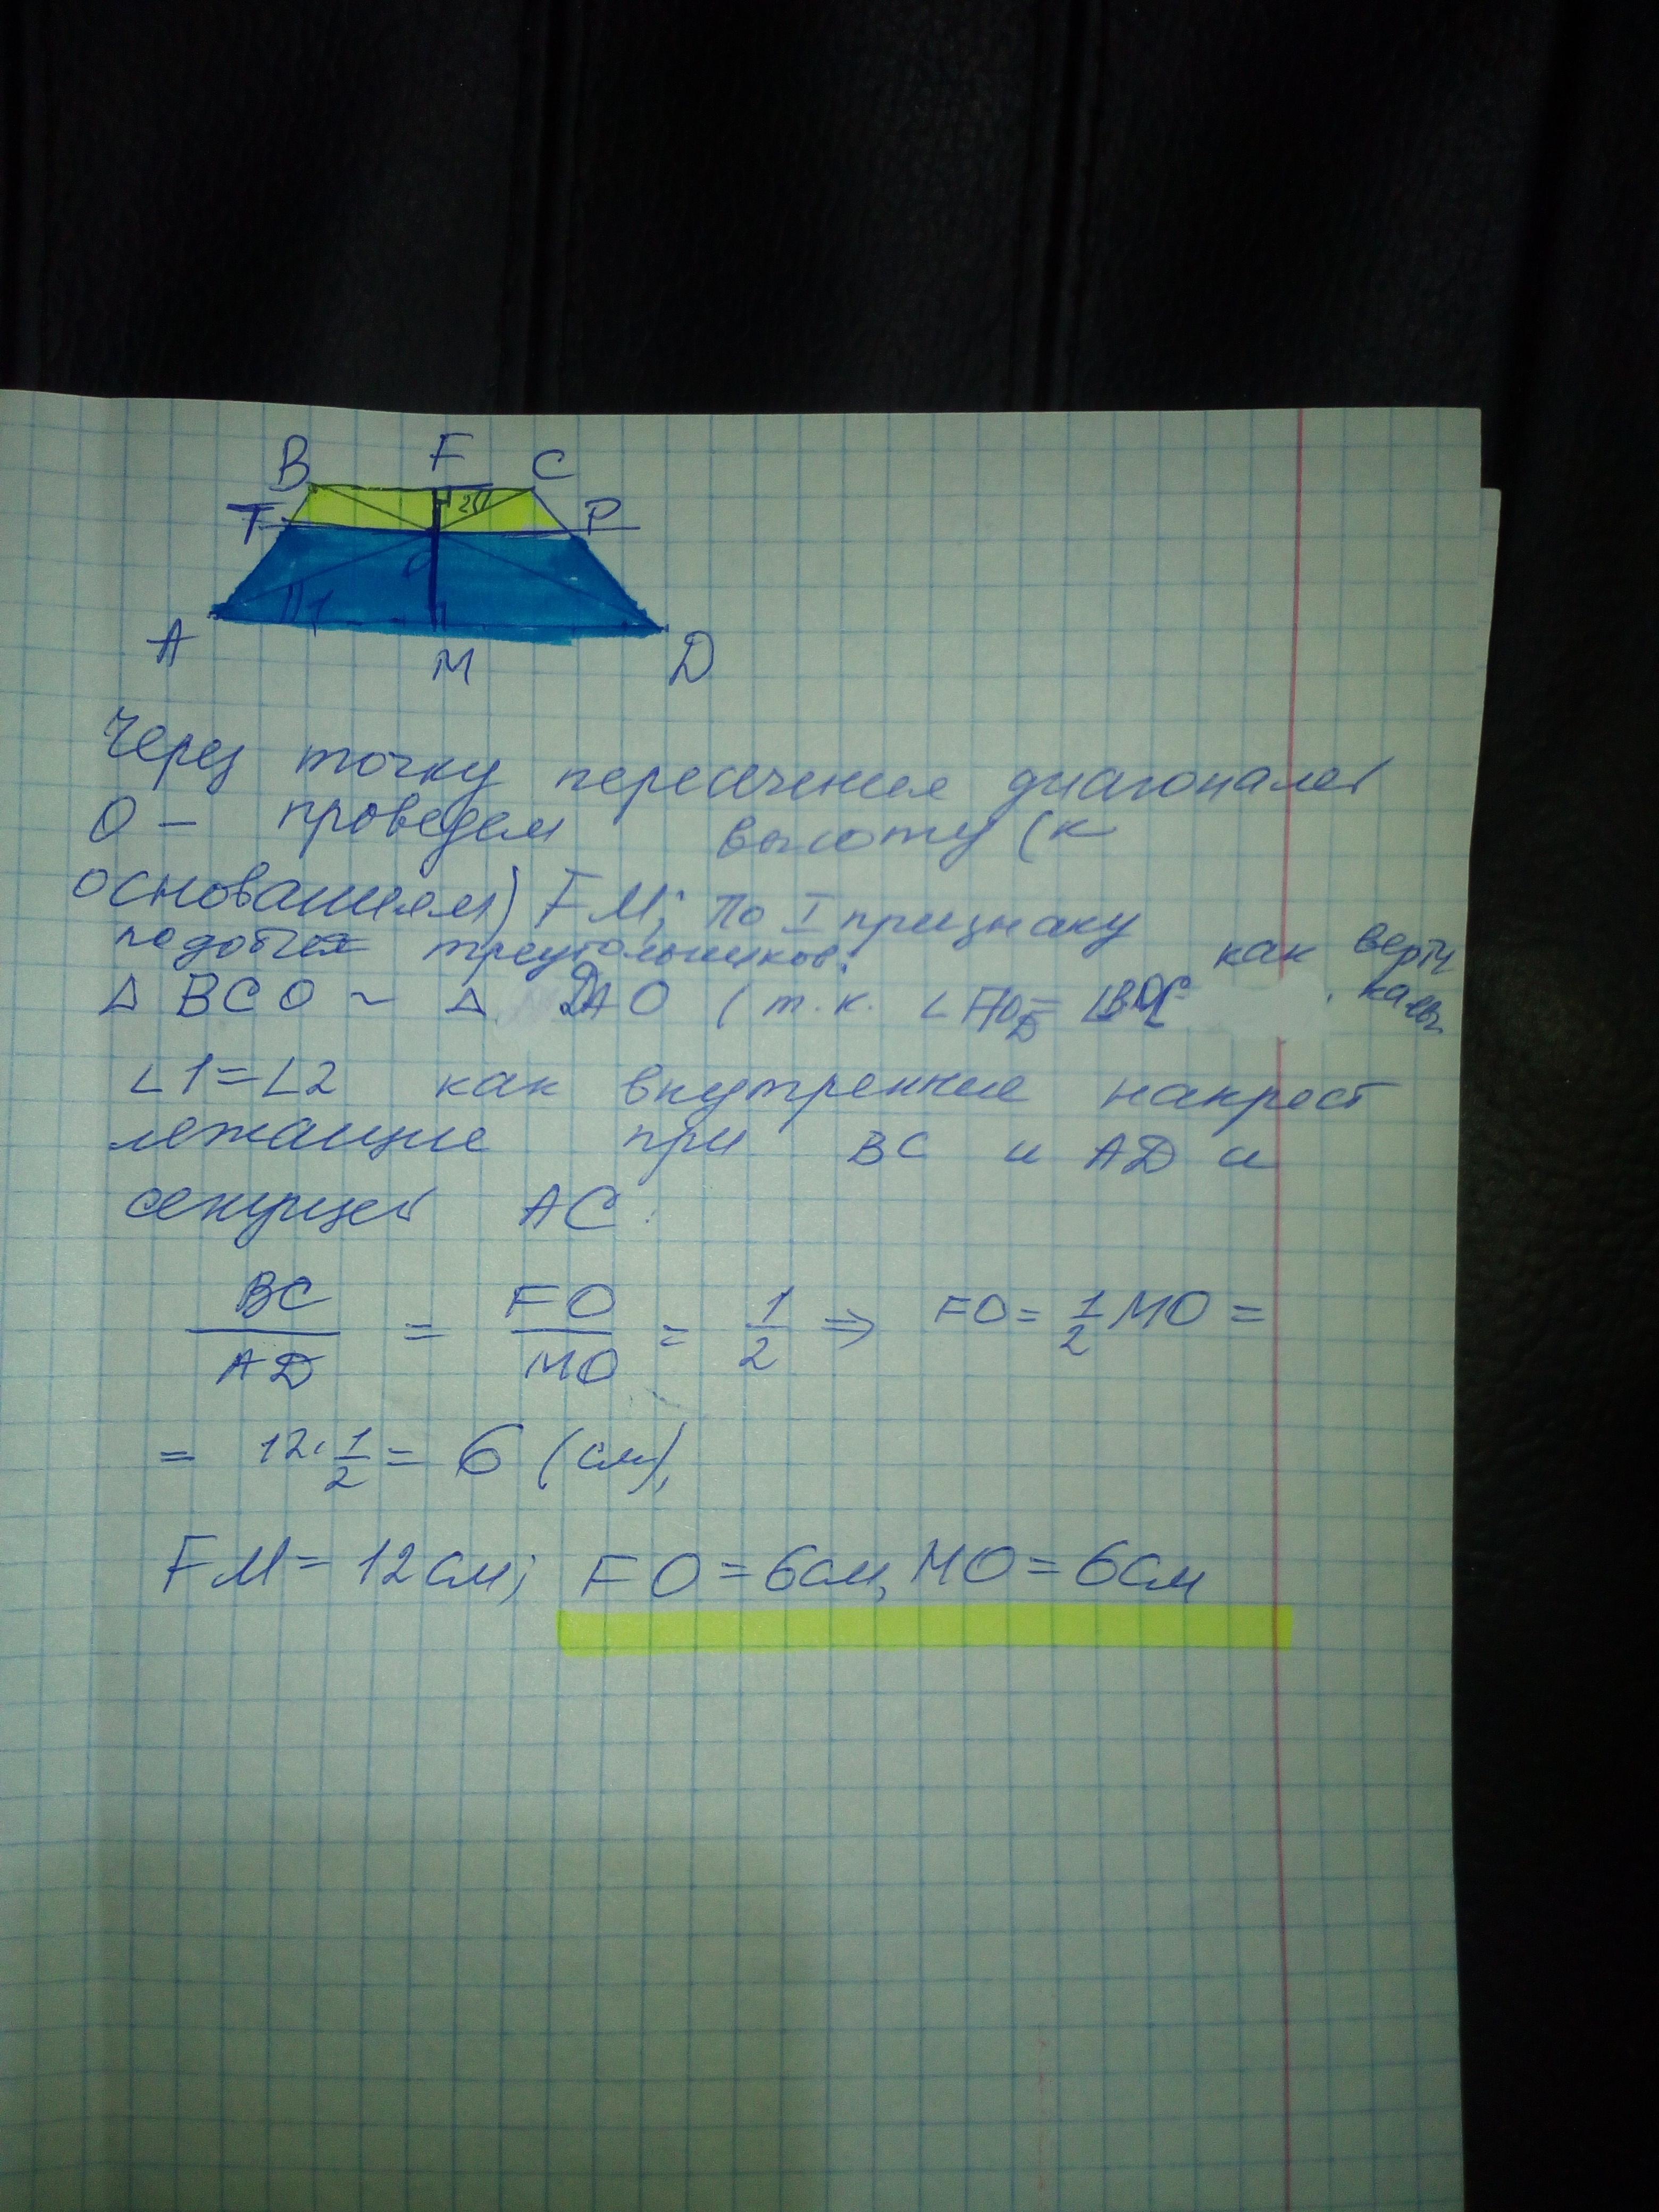 B F C
T 2 P
O
1
A M D
Через точку пересечения диагоналей
O – проведем высоту (к
основаниям) FM; По I признаку
подобия треугольников:
△ BCO ~ △ DAO (т.к. ∠AOD = ∠BOC как вертикальн.
∠1=∠2 как внутренние накрест
лежащие при BC и AD и
секущей AC.
BC/AD = FO/MO = 1/2 ⇒ FO = 1/2 MO =
= 12·1/2 = 6 (см),
FM = 12см; FO = 6см, MO = 6см